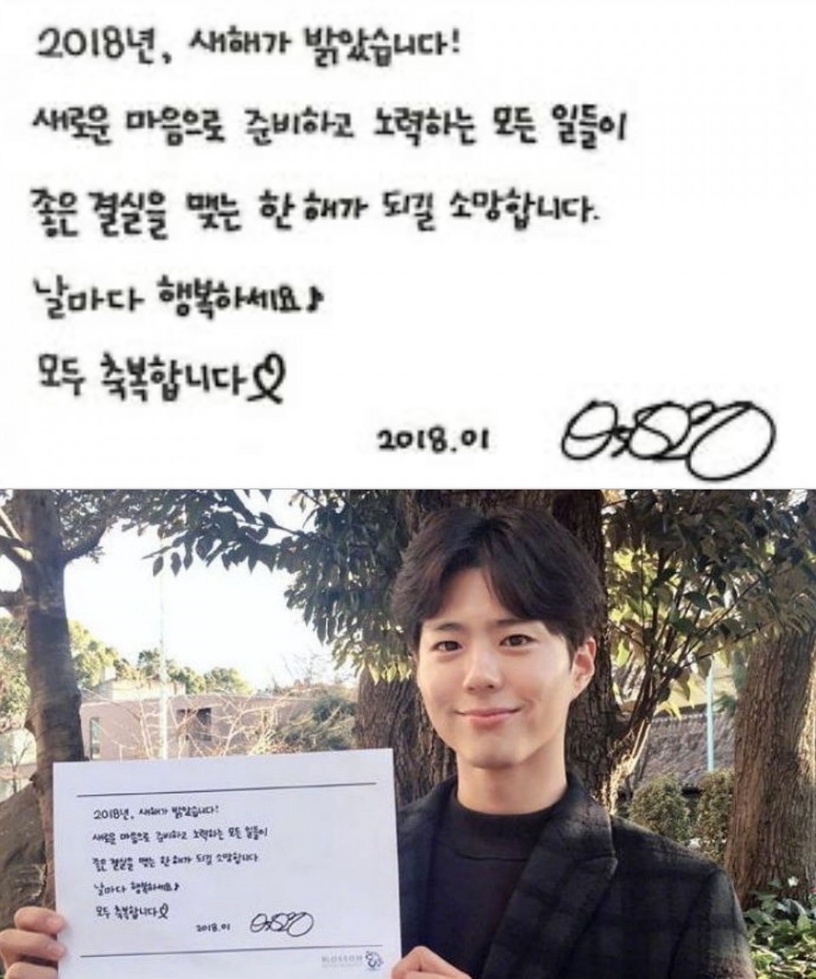 2018년, 새해가 밝았습니다!
새로운 마음으로 준비하고 노력하는 모든 일들이
좋은 결실을 맺는 한 해가 되길 소망합니다.
날마다 행복하세요♪
모두 축복합니다♡
2018.01
2018년, 새해가 밝았습니다!
새로운 마음으로 준비하고 노력하는 모든 일들이
좋은 결실을 맺는 한 해가 되길 소망합니다
날마다 행복하세요♪
모두 축복합니다♡
2018.01
BLOSSOM